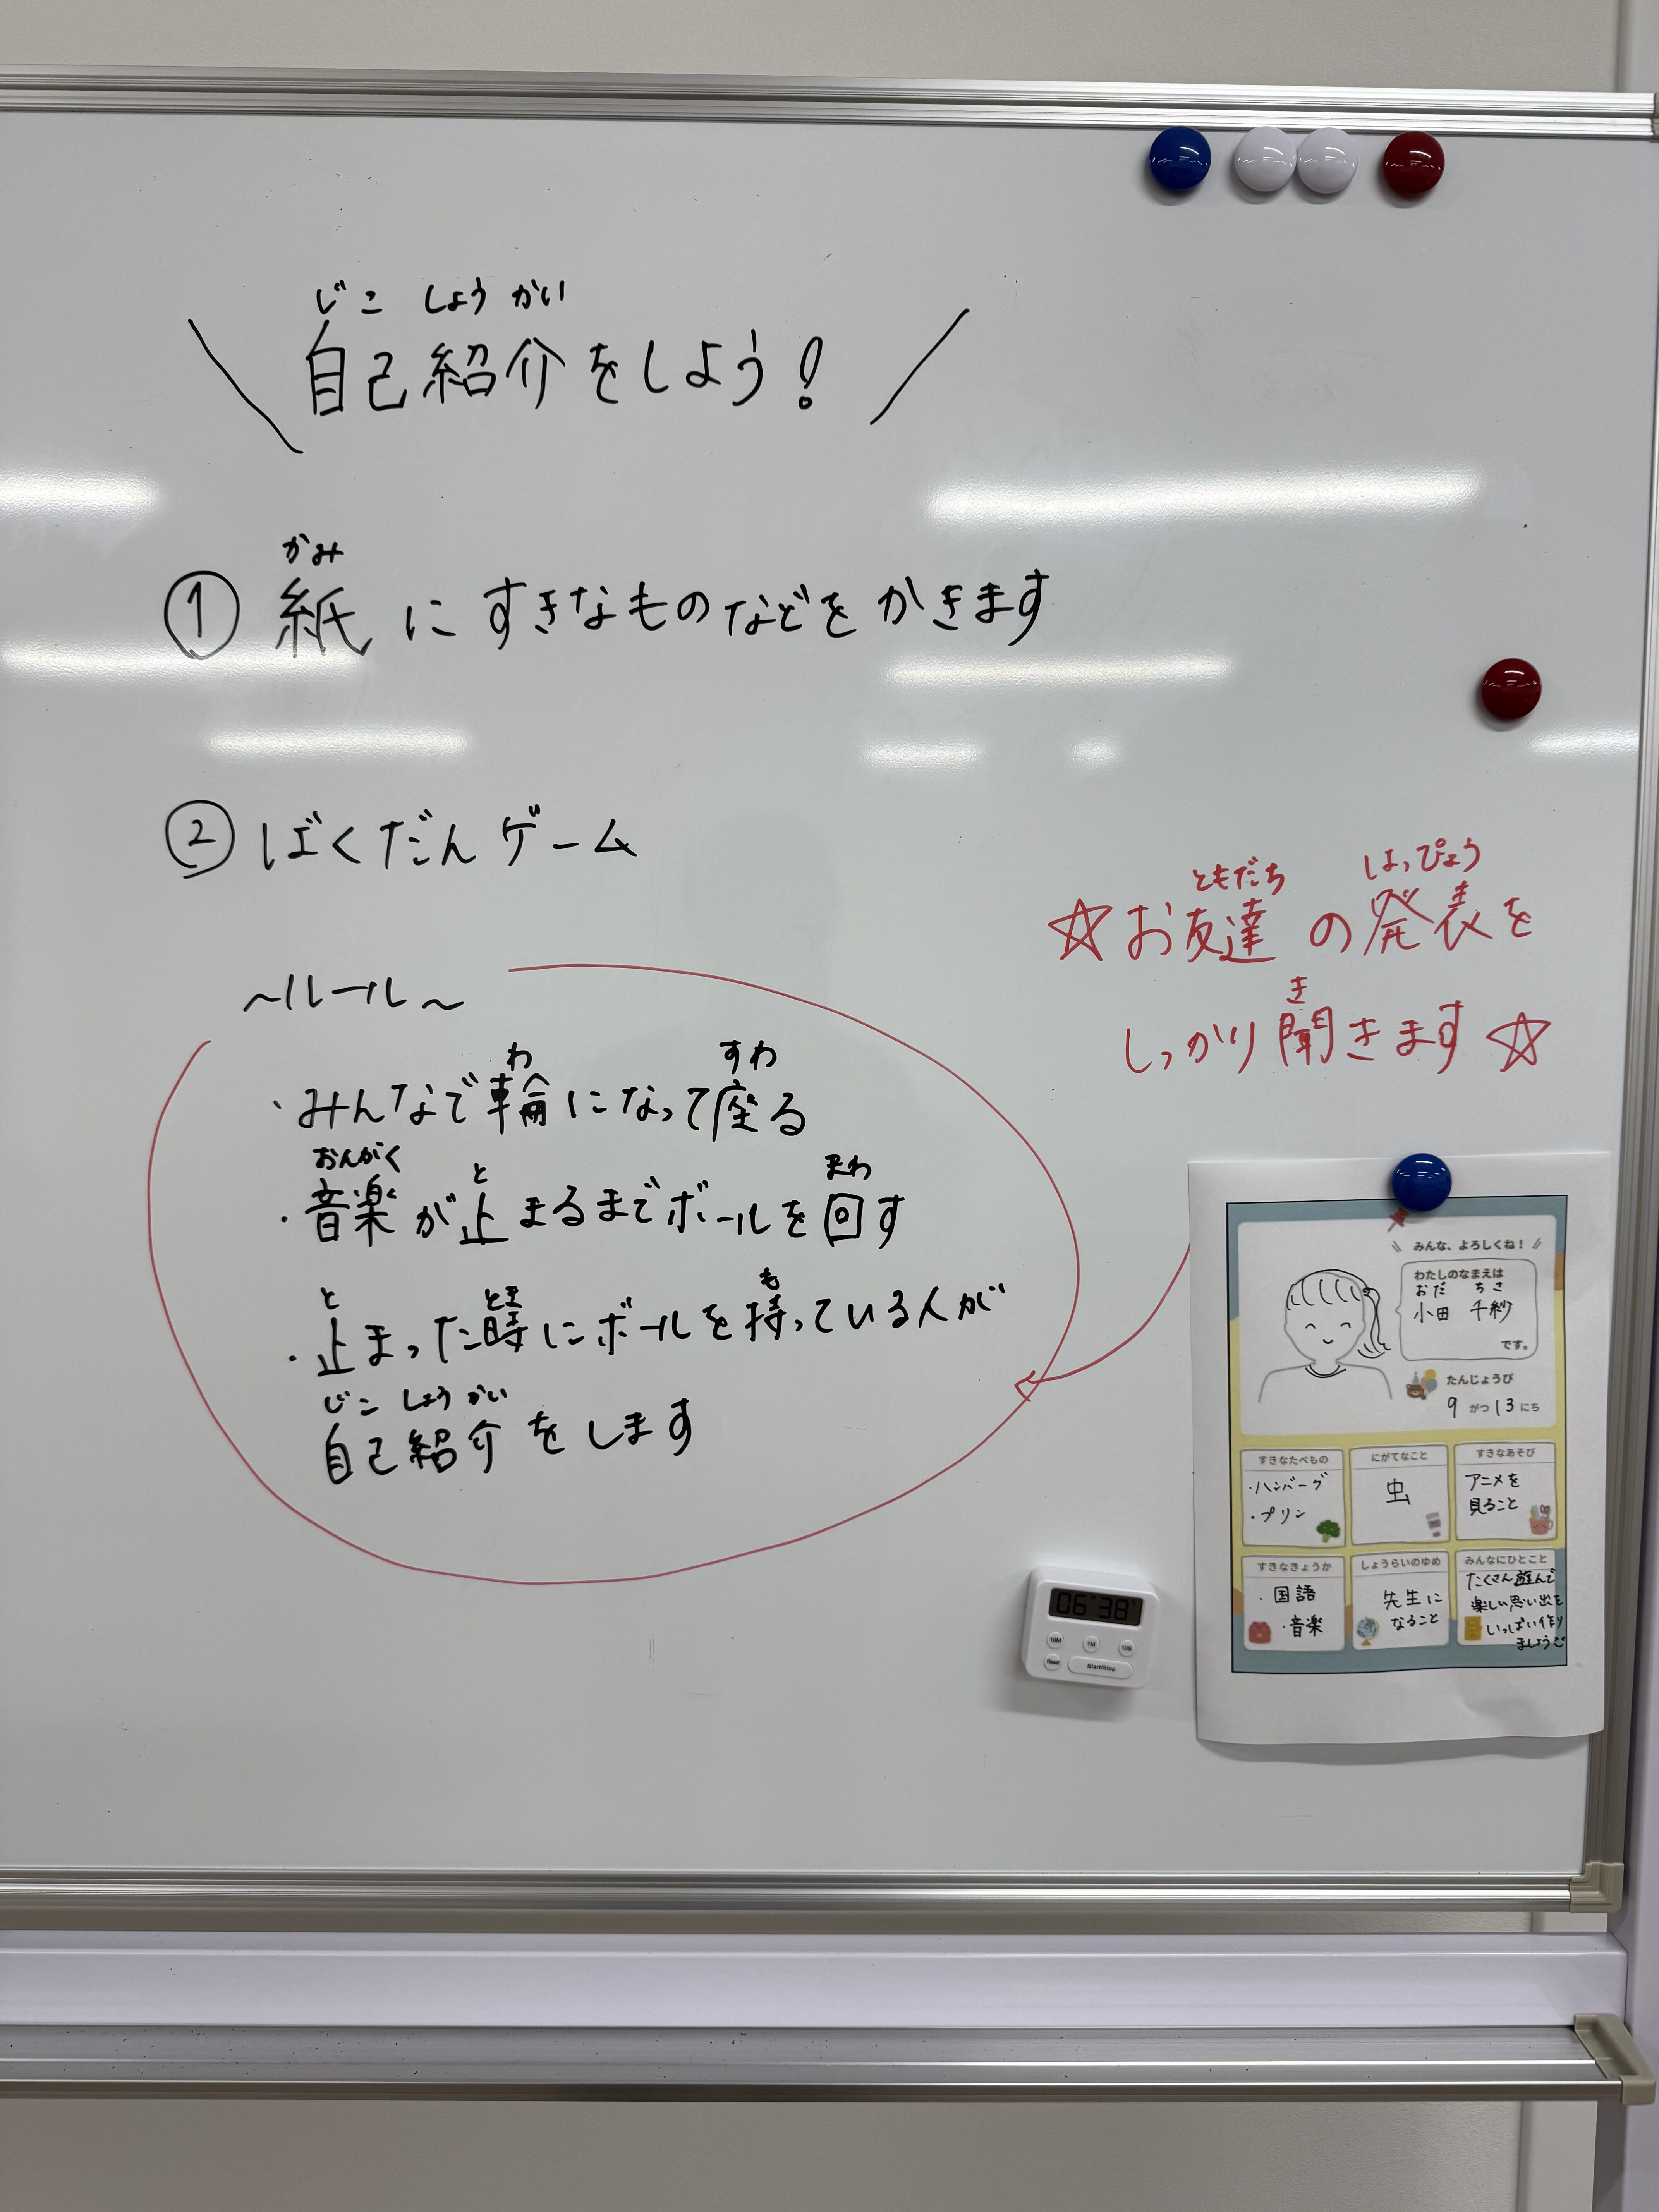 じこ しょう かい
自己紹介をしよう!
かみ
① 紙にすきなものなどをかきます
② ばくだんゲーム
~ルール~
わ すわ
・みんなで輪になって座る
おんがく と まわ
・音楽が止まるまでボールを回す
と とき も
・止まった時にボールを持っている人が
じこ しょう かい
自己紹介をします
ともだち はっぴょう
☆お友達の発表を
き
しっかり聞きます☆
みんな、よろしくね!
わたしのなまえは
おだ ちさ
小田 千紗
です。
たんじょうび
9がつ13にち
すきなたべもの
・ハンバーグ
・プリン
にがてなこと
虫
すきなあそび
アニメを
見ること
すきなきょうか
・国語
・音楽
しょうらいのゆめ
先生に
なること
みんなにひとこと
たくさん遊んで
楽しい思い出を
いっぱい作り
ましょう
06 38
10M 1M 10S
Reset Start/Stop